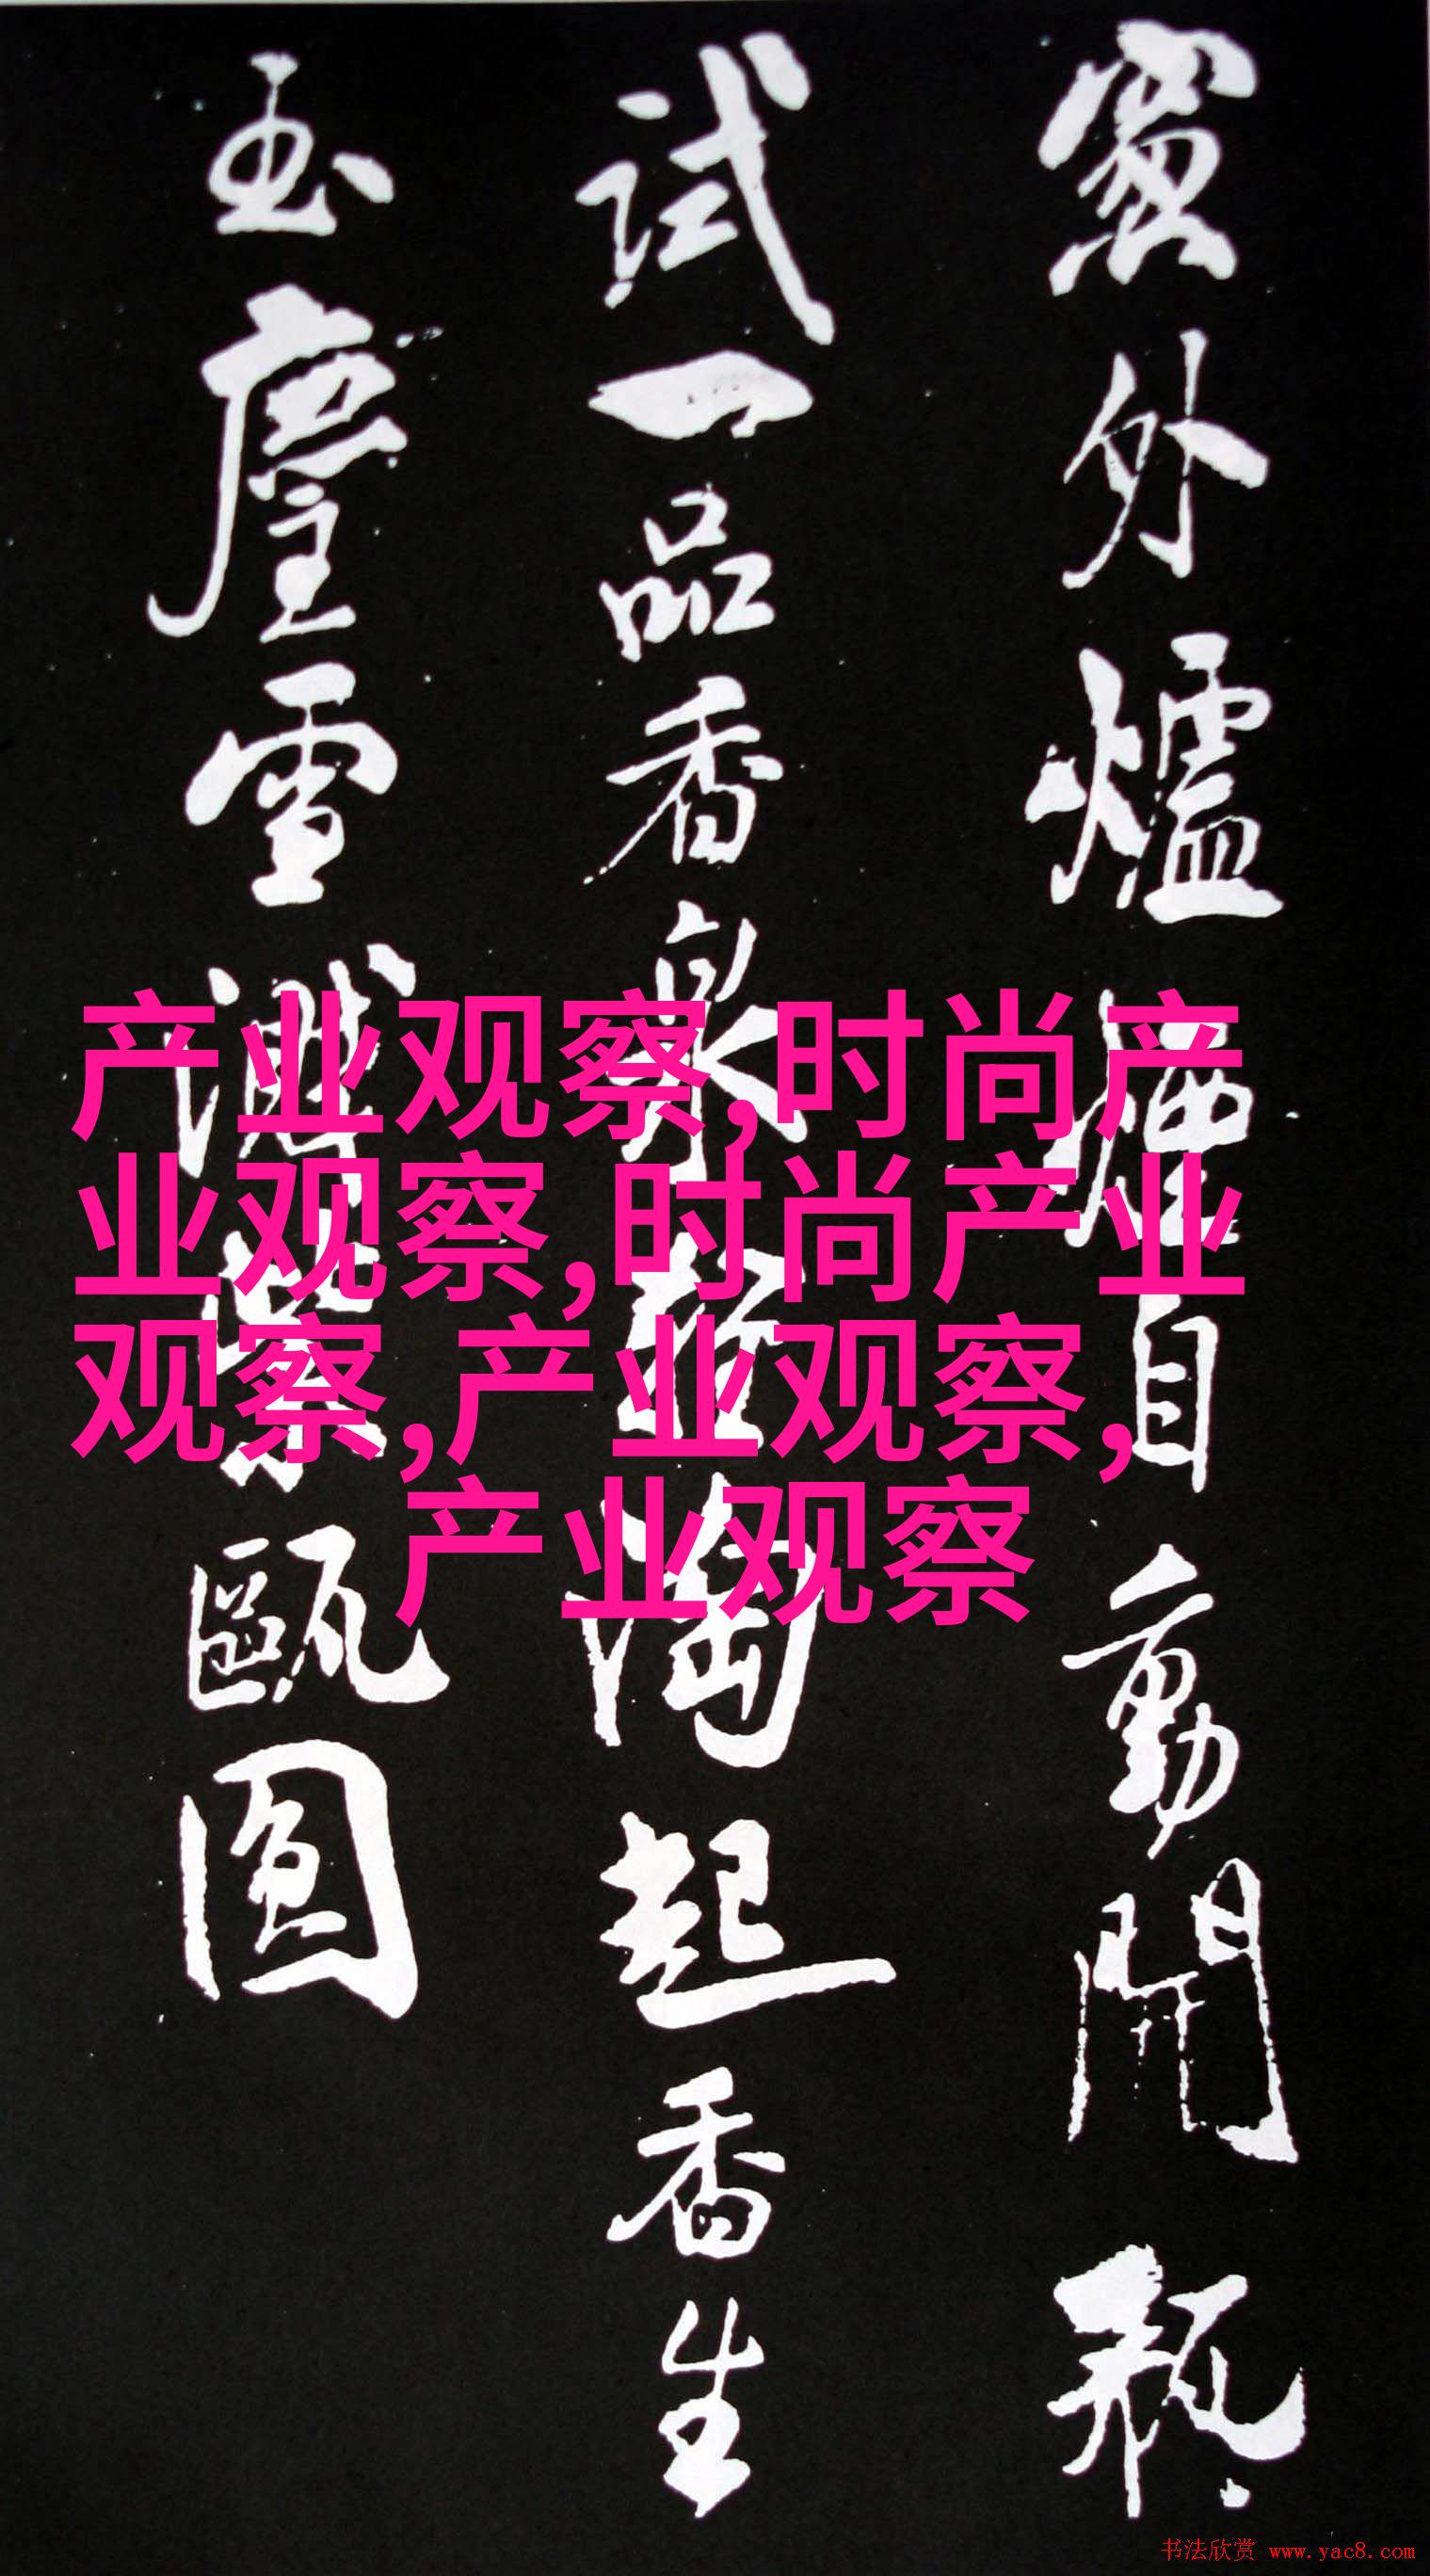 窻外爐煙自動開瓶
試一品香泉輕淘起香生
玉塵雪濺紫甌圓
产业观察,时尚产
业观察,时尚产业
观察,产业观察,
产业观察
书法欣赏 www.yac8.com